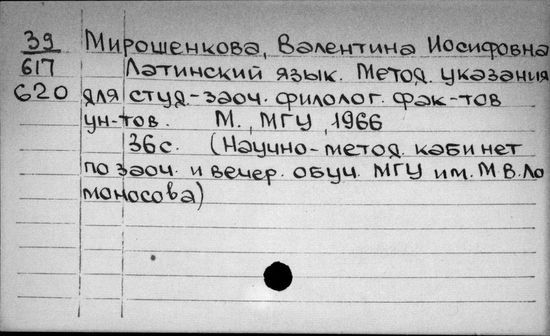 39 Мирошенкова, Валентина Иосифовна
617 Латинский язык. Метод. указания
620 для студ-заоч. филолог. фак-тов
ун-тов. М., МГУ, 1966
36с. (Научно-метод. кабинет
по заоч. и вечер. обуч. МГУ им. М.В.Ло
моносова)